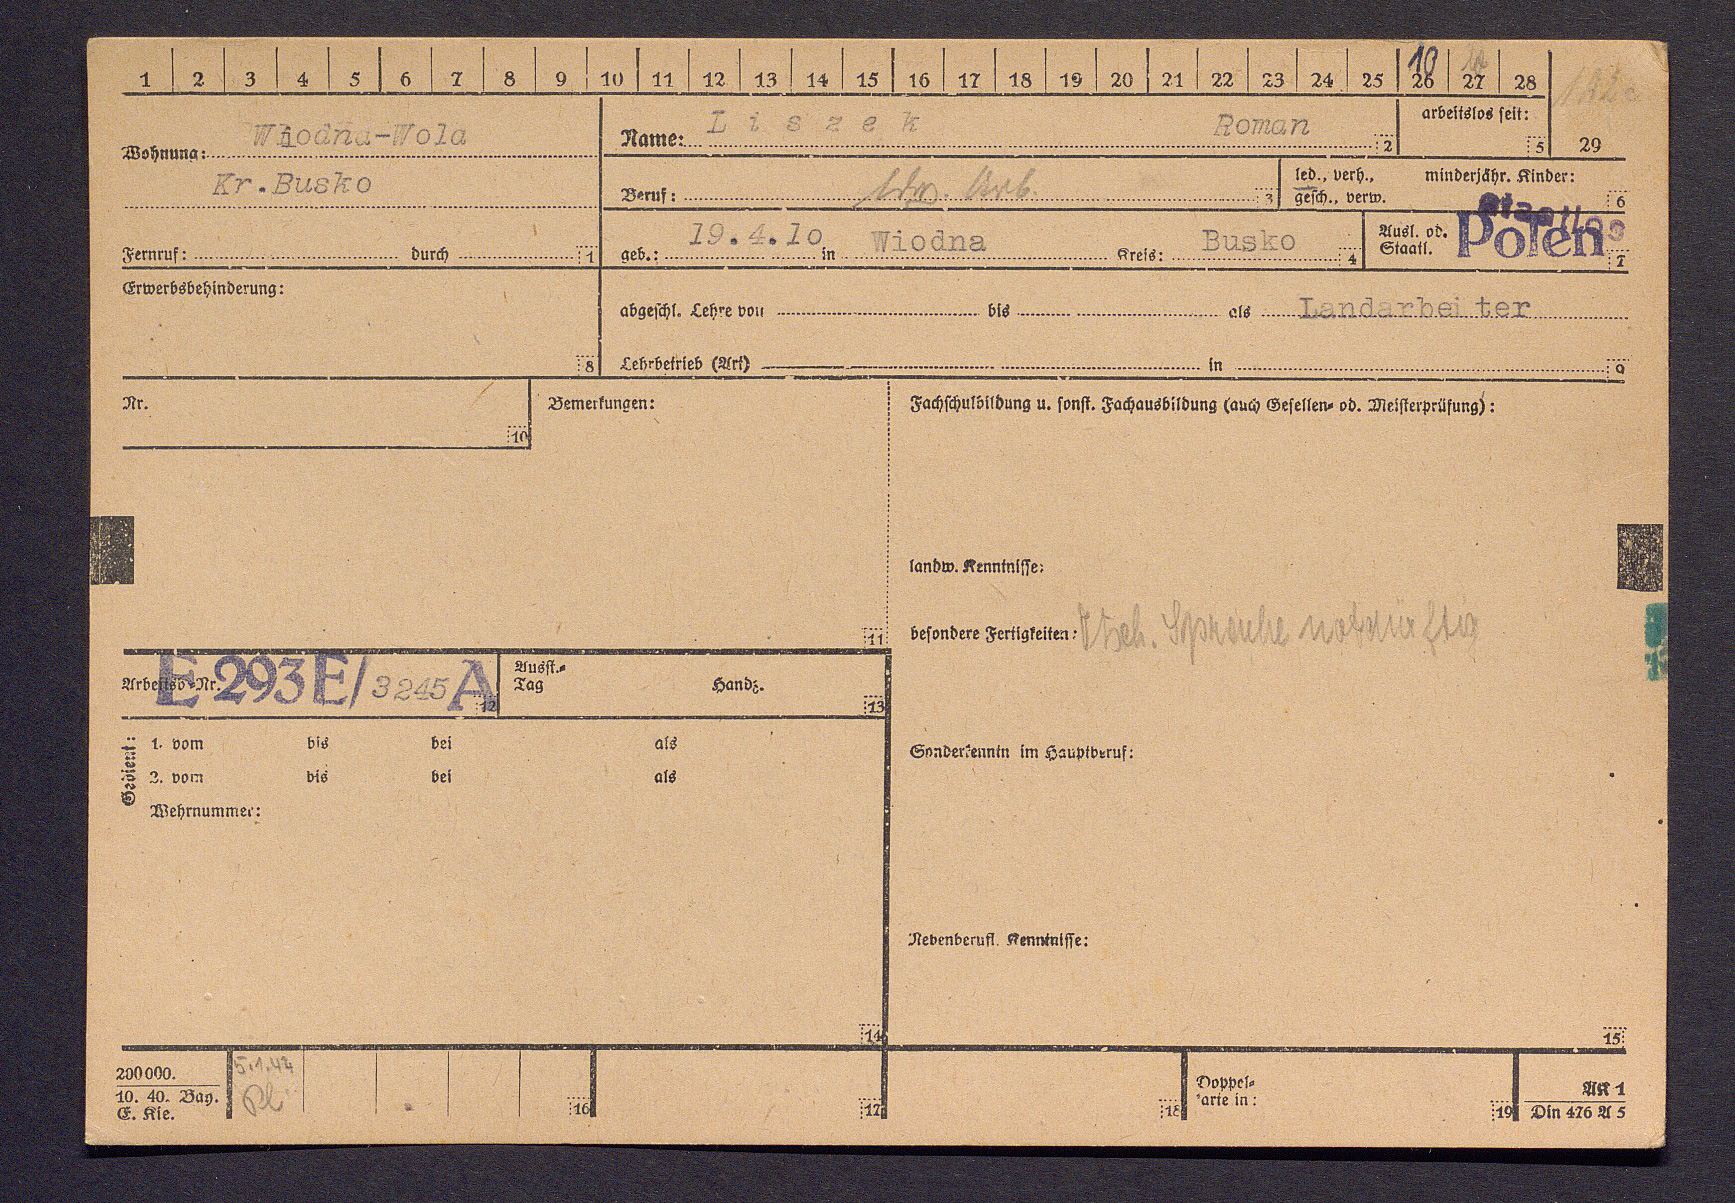 1 2 3 4 5 6 7 8 9 10 11 12 13 14 15 16 17 18 19 20 21 22 23 24 25 26 27 28
10
Wohnung: Wiodna-Wola
Kr.Busko
Fernruf: durch 1
Name: Liszek Roman 2
arbeitslos seit: 5
29
Beruf: Arb. 3
led., verh., gesch., verw.
minderjähr. Kinder: 6
geb.: 19.4.10 in Wiodna Kreis: Busko 4
Ausl. od. Staatl. Staatlos Polen 7
Erwerbsbehinderung: 8
abgeschl. Lehre von bis als Landarbeiter
Lehrbetrieb (Art) in 9
Nr. 10
Bemerkungen: 11
Fachschulbildung u. sonst. Fachausbildung (auch Gesellen- od. Meisterprüfung):
landw. Kenntnisse:
besondere Fertigkeiten: Dtsch. Sprache notdürftig
Sonderkenntn im Hauptberuf:
Nebenberufl. Kenntnisse:
15
Arbeitsb.-Nr. E 293E/3245 A 12
Ausst.-Tag Handz. 13
Gedient:
1. vom bis bei als
2. vom bis bei als
Wehrnummer:
14
200000.
10. 40. Bay.
E. Kle.
5.1.42
16
17
18
Doppel-
karte in: 19
AK 1
Din 476 A 5